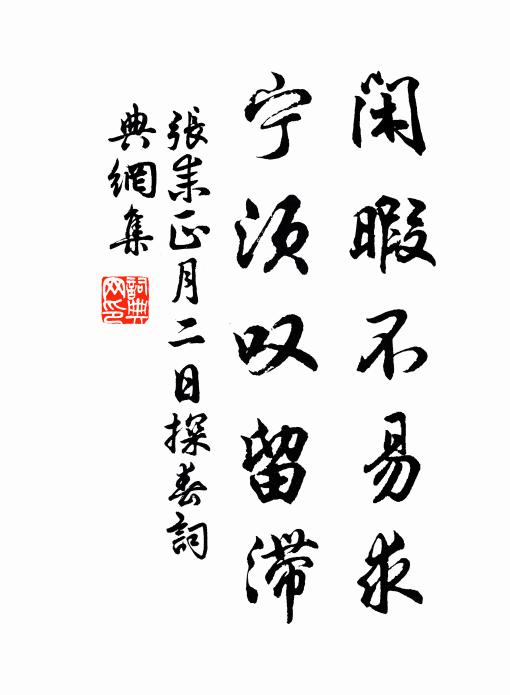 闲暇不易求
宁须叹留滞
張耒正月二日探春詞
典網集
詞典网印